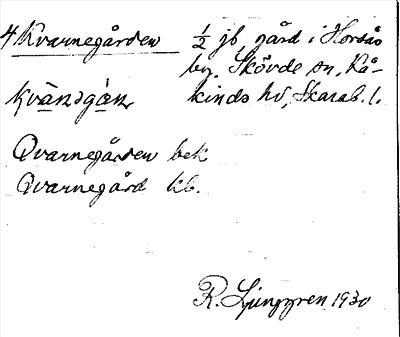 4 Kvarnegården ½ jb, gård i Horsås
by, Skövde sn, Kå-
kinds hd, Skarab. l.
kvà̱nɔgàn
Qvarnegården bek
Qvarnegård kb.
R. Ljunggren 1930